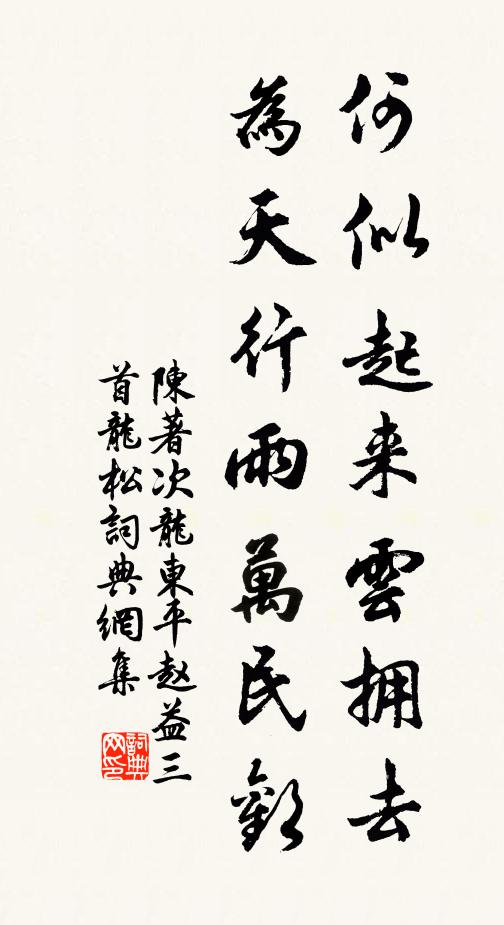 何似起来雲拥去
為天行雨萬民歡
陳著次龍東平赵益三
首龍松詞典網集
詞典
网印